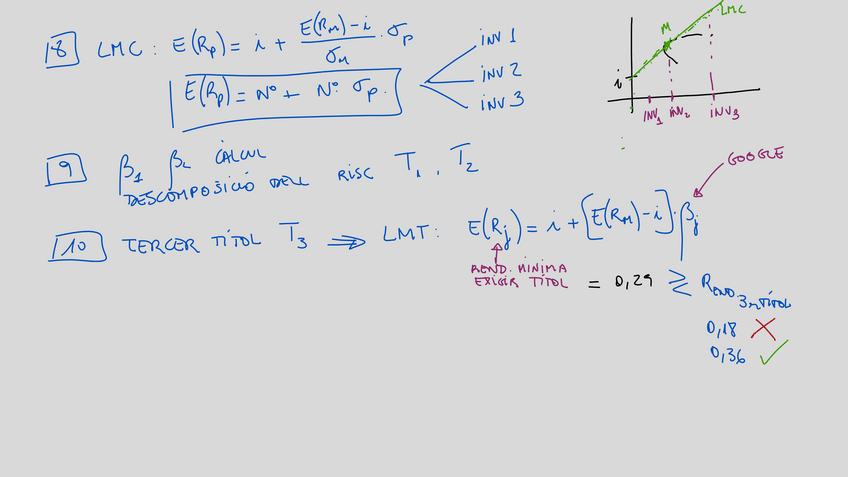 8 LMC: E(Rp) = i + (E(RM) - i)/σM · σp
E(Rp) = Nº + Nº σp.
INV 1
INV 2
INV 3
LMC
M
i
INV1 INV2 INV3
9 β1 β2 CÀLCUL
DESCOMPOSICIÓ DEL RISC T1, T2
GOOGLE
10 TERCER TÍTOL T3 ⇒ LMT: E(Rj) = i + [E(RM) - i] · βj
REND. MÍNIMA
EXIGIR TÍTOL = 0,29 ≷ REND 3r TÍTOL
0,18 ✗
0,36 ✓